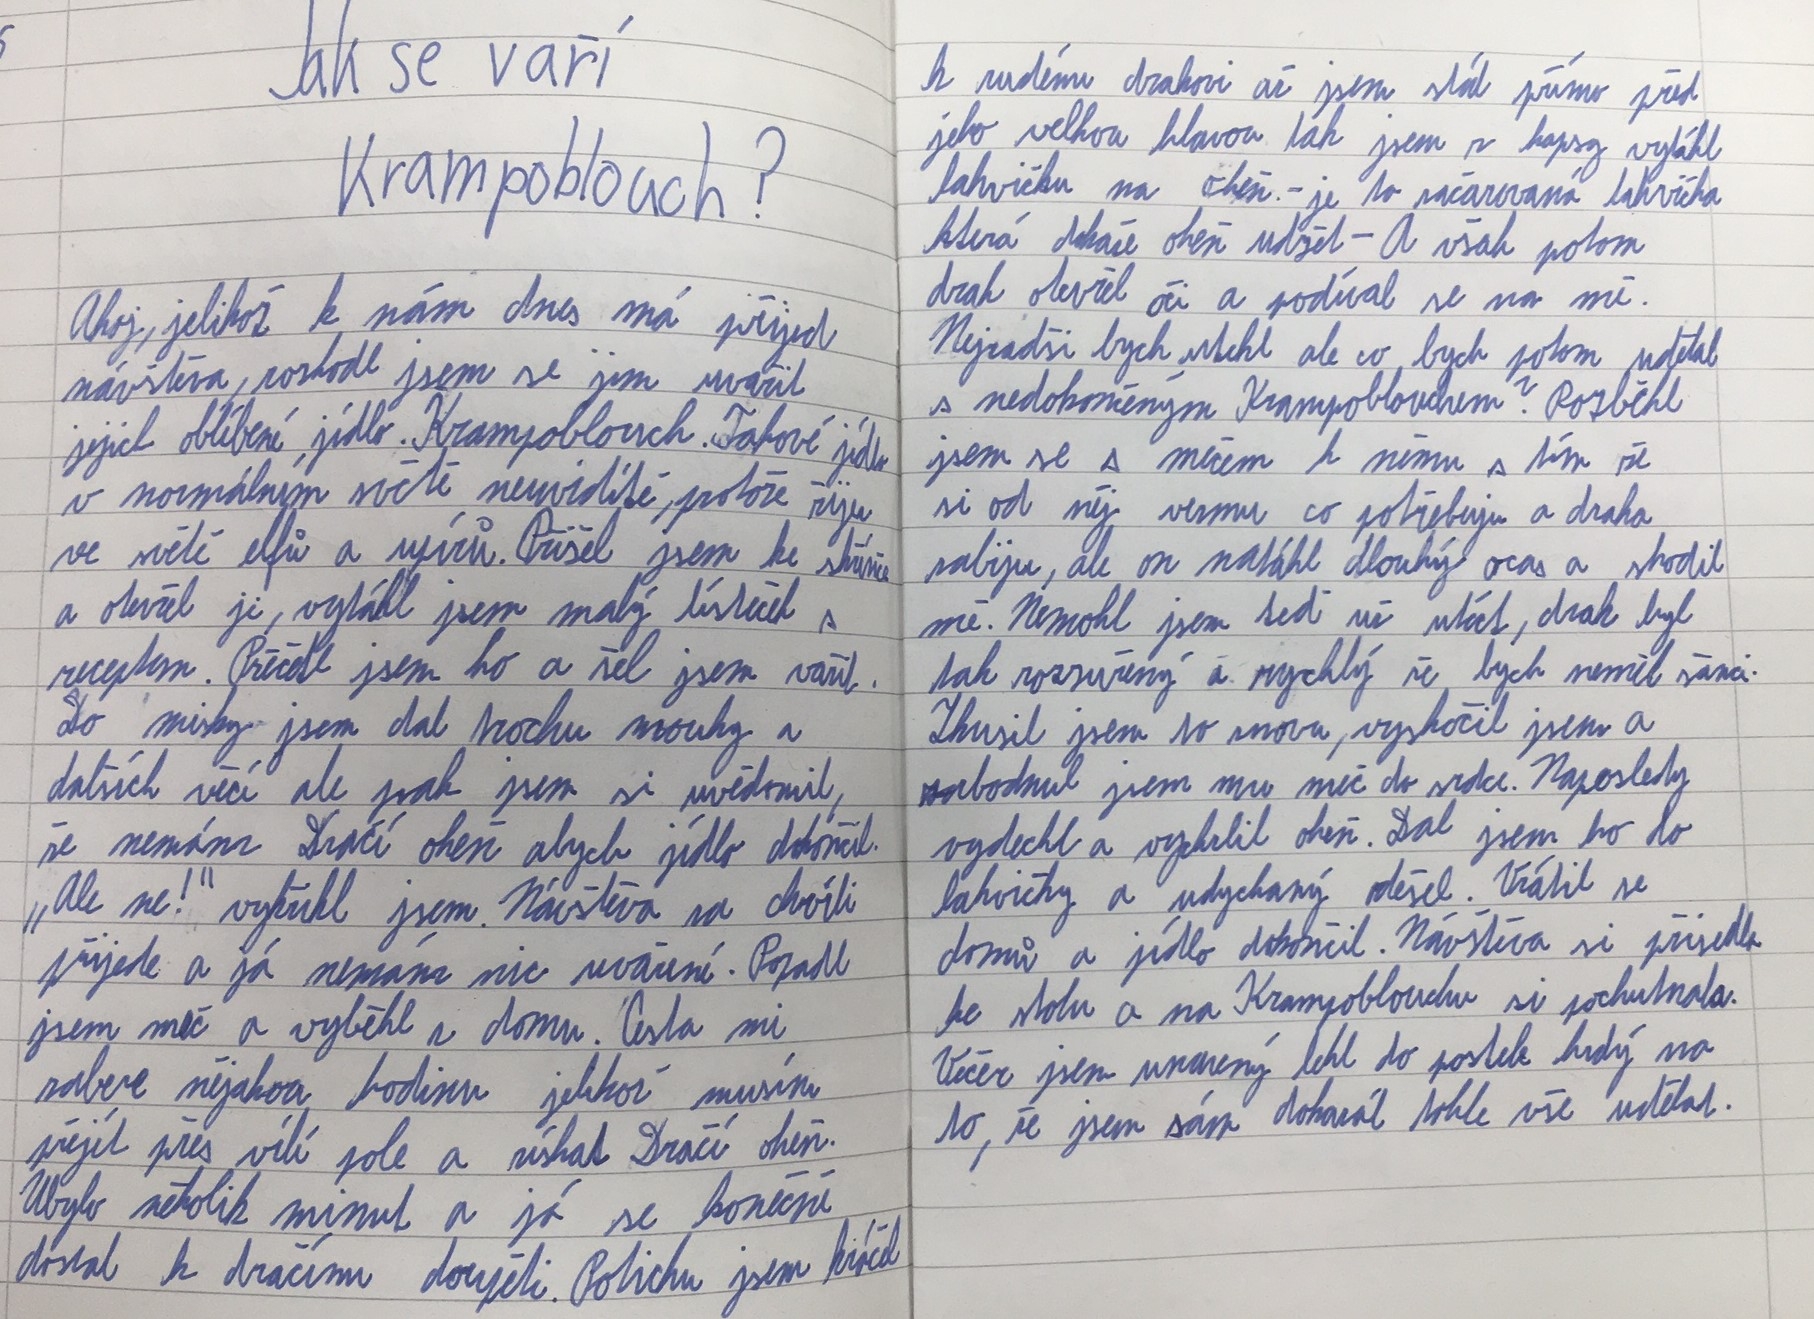 Jak se vaří
Krampoblouch?
Ahoj, jelikož k nám dnes má přijed
návštěva, rozhodl jsem se jim uvařit
jejich oblíbené jídlo. Krampoblouch. Takové jídlo
v normálním světě neuvidíte, protože žiju
ve světě elfů a upírů. Přišel jsem ke skřínce
a otevřel ji, vytáhl jsem malý lísteček s
receptem. Přečetl jsem ho a šel jsem vařit.
Do misky jsem dal trochu mouky a
dalších věcí ale pak jsem si uvědomil,
že nemám Dračí oheň abych jídlo dokončil.
„Ale ne!" vykřikl jsem. Návštěva za chvíli
přijede a já nemám nic uvařené. Popadl
jsem meč a vyběhl z domu. Cesta mi
zabere nějakou hodinu jelikož musím
přejít přes vílí pole a získat Dračí oheň.
Ubylo několik minut a já se konečně
dostal k dračímu doupěti. Potichu jsem kráčel
k rudému drakovi až jsem stál přímo před
jeho velkou hlavou tak jsem z kapsy vytáhl
lahvičku na oheň. - je to začarovaná lahvička
která dokáže oheň udržet - A však potom
drak otevřel oči a podíval se na mě.
Nejradši bych utekl ale co bych potom udělal
s nedokončeným Krampoblouchem? Rozběhl
jsem se s mečem k němu s tím že
si od něj vezmu co potřebuju a draka
zabiju, ale on natáhl dlouhý ocas a shodil
mě. Nemohl jsem teď už utéct, drak byl
tak rozzuřený a rychlý že bych neměl šanci.
Zkusil jsem to znovu, vyskočil jsem a
zabodnul jsem mu meč do srdce. Naposledy
vydechl a vychrlil oheň. Dal jsem ho do
lahvičky a udychaný odešel. Vrátil se
domů a jídlo dokončil. Návštěva si přisedla
ke stolu a na Krampoblouchu si pochutnala.
Večer jsem unavený lehl do postele hrdý na
to, že jsem sám dokázal tohle vše udělat.